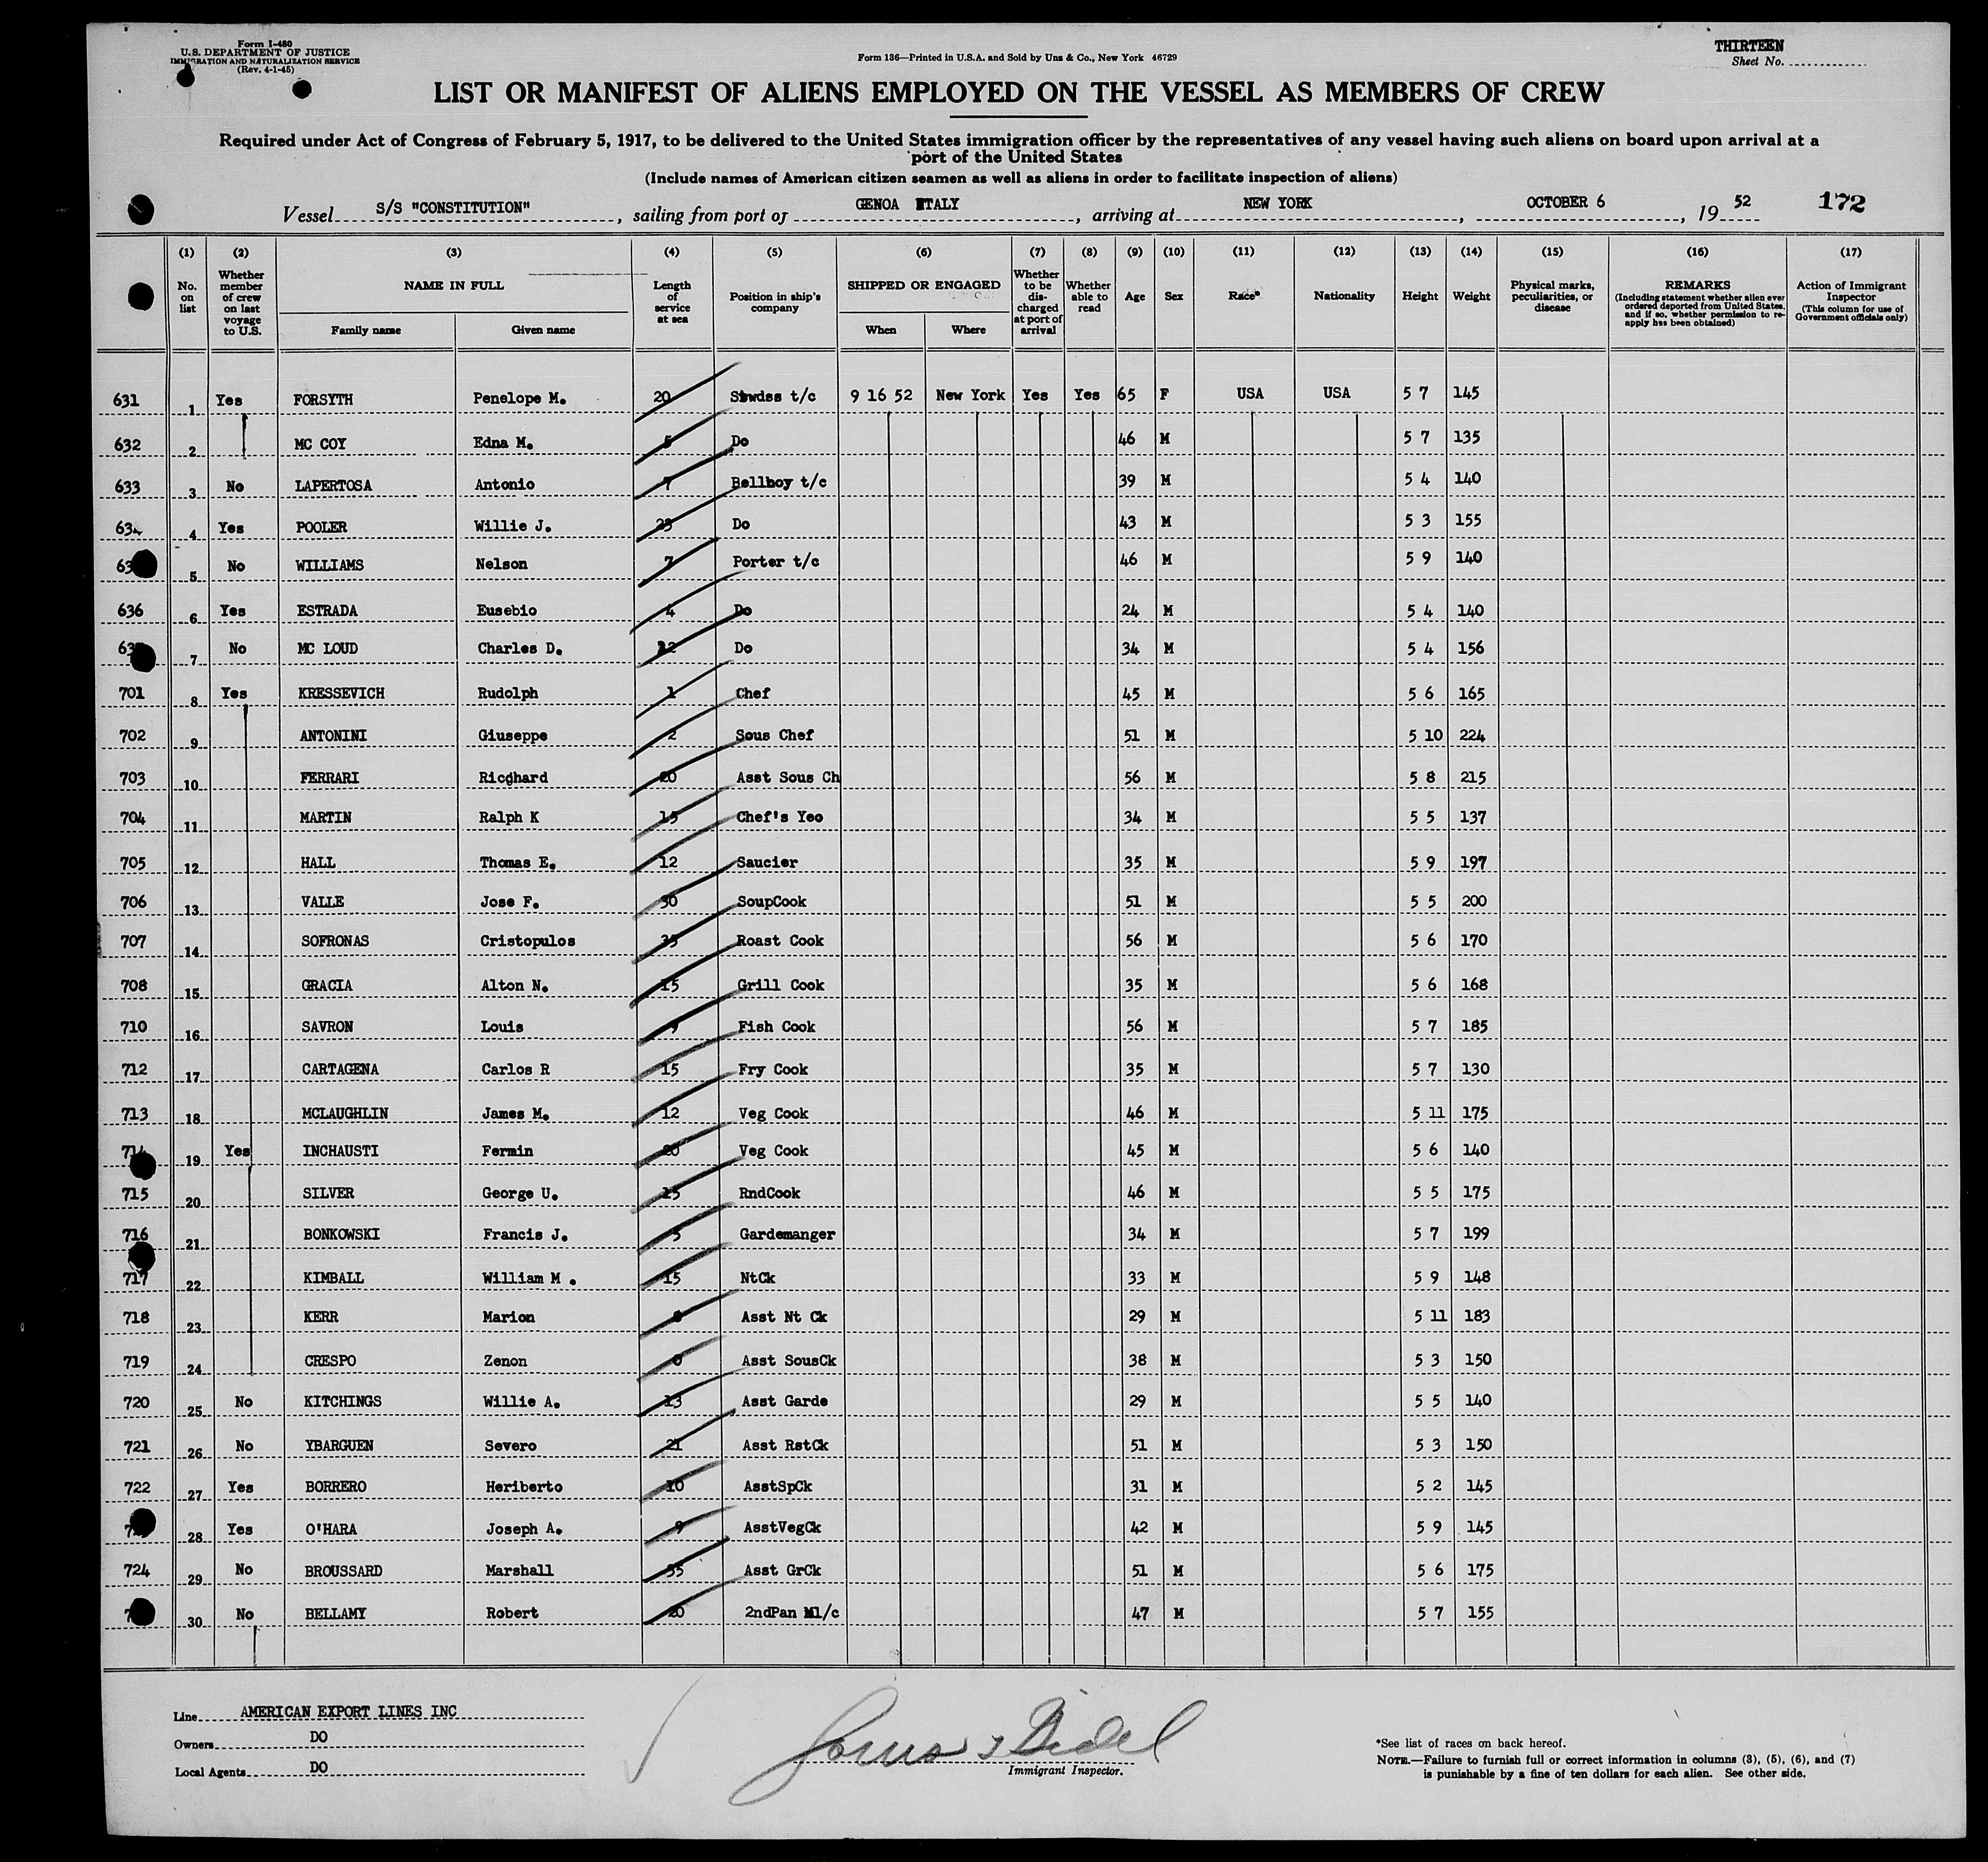 Form I-480
U.S. DEPARTMENT OF JUSTICE
IMMIGRATION AND NATURALIZATION SERVICE
(Rev. 4-1-45)
Form 136—Printed in U.S.A. and Sold by Unz & Co., New York 46729
THIRTEEN
Sheet No.
LIST OR MANIFEST OF ALIENS EMPLOYED ON THE VESSEL AS MEMBERS OF CREW
Required under Act of Congress of February 5, 1917, to be delivered to the United States immigration officer by the representatives of any vessel having such aliens on board upon arrival at a
port of the United States
(Include names of American citizen seamen as well as aliens in order to facilitate inspection of aliens)
Vessel S/S "CONSTITUTION", sailing from port of GENOA ITALY, arriving at NEW YORK, OCTOBER 6, 19 52 172
(1) (2) (3) (4) (5) (6) (7) (8) (9) (10) (11) (12) (13) (14) (15) (16) (17)
No. on list
Whether member of crew on last voyage to U.S.
NAME IN FULL
Family name Given name
Length of service at sea
Position in ship's company
SHIPPED OR ENGAGED
When Where
Whether to be discharged at port of arrival
Whether able to read
Age
Sex
Race*
Nationality
Height
Weight
Physical marks, peculiarities, or disease
REMARKS
(Including statement whether alien ever ordered deported from United States, and if so, whether permission to reapply has been obtained)
Action of Immigrant Inspector
(This column for use of Government officials only)
631 1 Yes FORSYTH Penelope M. 20 Stwdss t/c 9 16 52 New York Yes Yes 65 F USA USA 5 7 145
632 2 MC COY Edna M. 5 Do 46 M 5 7 135
633 3 No LAPERTOSA Antonio 7 Bellboy t/c 39 M 5 4 140
634 4 Yes POOLER Willie J. 23 Do 43 M 5 3 155
5 No WILLIAMS Nelson 7 Porter t/c 46 M 5 9 140
636 6 Yes ESTRADA Eusebio 4 Do 24 M 5 4 140
7 No MC LOUD Charles D. 12 Do 34 M 5 4 156
701 8 Yes KRESSEVICH Rudolph 1 Chef 45 M 5 6 165
702 9 ANTONINI Giuseppe 2 Sous Chef 51 M 5 10 224
703 10 FERRARI Ricghard 20 Asst Sous Ch 56 M 5 8 215
704 11 MARTIN Ralph K 15 Chef's Yeo 34 M 5 5 137
705 12 HALL Thomas E. 12 Saucier 35 M 5 9 197
706 13 VALLE Jose F. 30 SoupCook 51 M 5 5 200
707 14 SOFRONAS Cristopulos 35 Roast Cook 56 M 5 6 170
708 15 GRACIA Alton N. 15 Grill Cook 35 M 5 6 168
710 16 SAVRON Louis Fish Cook 56 M 5 7 185
712 17 CARTAGENA Carlos R 15 Fry Cook 35 M 5 7 130
713 18 MCLAUGHLIN James M. 12 Veg Cook 46 M 5 11 175
714 19 Yes INCHAUSTI Fermin 20 Veg Cook 45 M 5 6 140
715 20 SILVER George U. 15 RndCook 46 M 5 5 175
716 21 BONKOWSKI Francis J. 5 Gardemanger 34 M 5 7 199
717 22 KIMBALL William M . 15 NtCk 33 M 5 9 148
718 23 KERR Marion Asst Nt Ck 29 M 5 11 183
719 24 CRESPO Zenon Asst SousCk 38 M 5 3 150
720 25 No KITCHINGS Willie A. 13 Asst Garde 29 M 5 5 140
721 26 No YBARGUEN Severo 21 Asst RstCk 51 M 5 3 150
722 27 Yes BORRERO Heriberto 10 AsstSpCk 31 M 5 2 145
28 Yes O'HARA Joseph A. 9 AsstVegCk 42 M 5 9 145
724 29 No BROUSSARD Marshall 35 Asst GrCk 51 M 5 6 175
30 No BELLAMY Robert 20 2ndPan Ml/c 47 M 5 7 155
Line AMERICAN EXPORT LINES INC
Owners DO
Local Agents DO
Immigrant Inspector.
*See list of races on back hereof.
NOTE.—Failure to furnish full or correct information in columns (3), (5), (6), and (7)
is punishable by a fine of ten dollars for each alien. See other side.